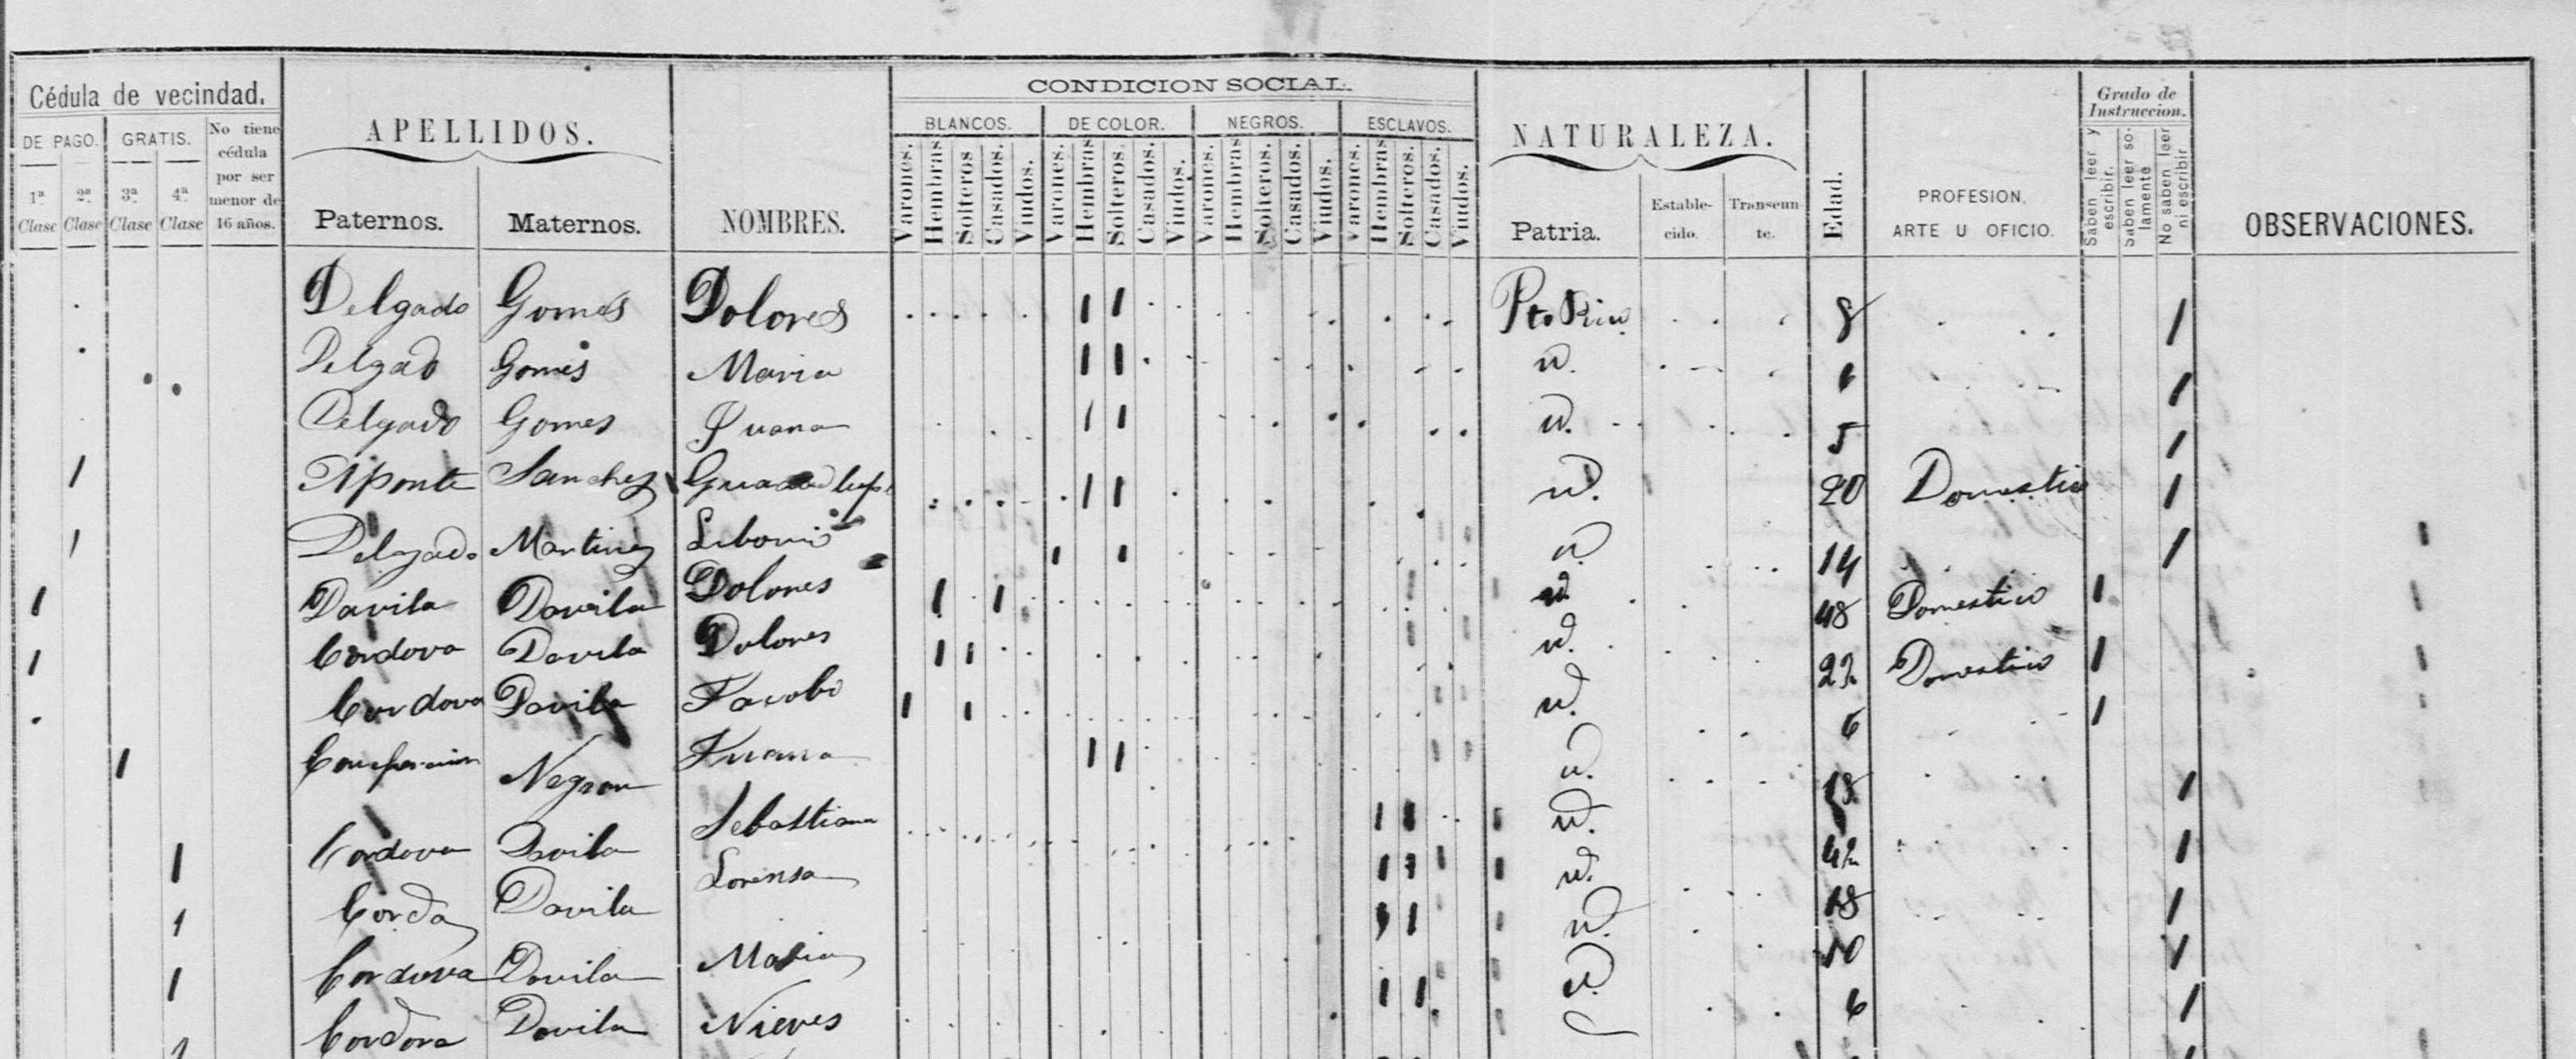 Cédula de vecindad.
DE PAGO. GRATIS. No tiene cédula por ser menor de 16 años.
1ª Clase 2ª Clase 3ª Clase 4ª Clase
APELLIDOS.
Paternos. Maternos. NOMBRES.
CONDICION SOCIAL.
BLANCOS. DE COLOR. NEGROS. ESCLAVOS.
Varones. Hembras Solteros Casados. Viudos. Varones. Hembras Solteros. Casados. Viudos. Varones. Hembras Solteros. Casados. Viudos. Varones. Hembras Solteros. Casados. Viudos.
NATURALEZA.
Patria. Estable-cido. Transeun-te.
Edad.
PROFESION, ARTE U OFICIO.
Grado de Instruccion.
Saben leer y escribir. Saben leer so-lamente No saben leer ni escribir
OBSERVACIONES.
Delgado Gomes Dolores 1 1 Pto Rico 8 1
Delgado Gomes Maria 1 1 id. 1
Delgado Gomes Juana 1 1 id. 5 1
1 Aponte Sanchez Guadalupe 1 1 id. 20 Domestico 1
1 Delgado Martinez Liborio 1 1 id 14 1
1 Davila Davila Dolores 1 1 id 48 Domestico 1
1 Cordova Davila Dolores 1 1 id. 22 Domestico 1
Cordova Davila Jacobo 1 1 id. 6 1
1 Negron Juana 1 1 id. 18 1
1 Cordova Davila Sebastiana 1 1 id. 42 1
1 Davila Lorensa 1 1 id. 18 1
1 Cordova Davila Maria 1 1 id. 10 1
1 Cordova Davila Nieves 1 1 id. 6 1